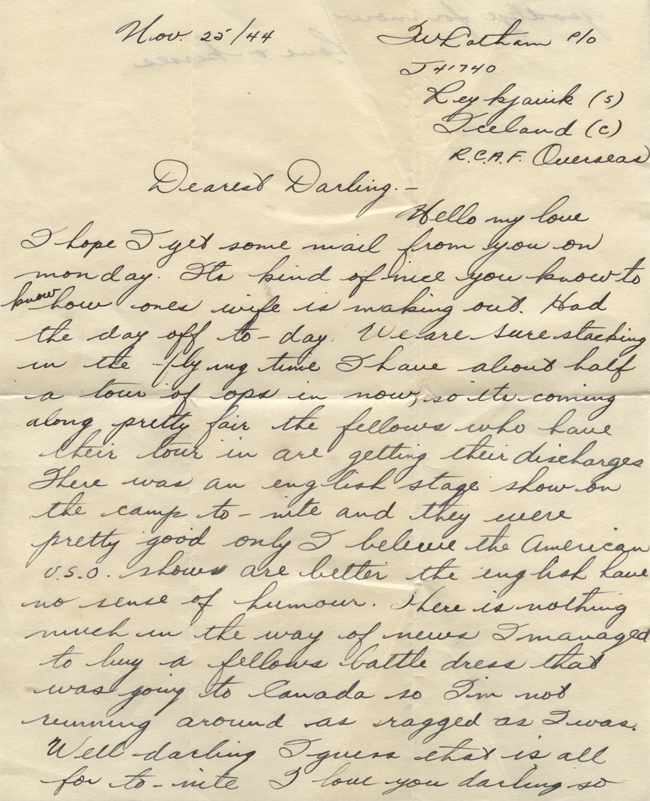 Nov. 25/44
TW Latham P/O
J41740
Reykjavik (S)
Iceland (C)
R.C.A.F. Overseas
Dearest Darling.-
Hello my love
I hope I get some mail from you on
monday. Its kind of nice you know to
know how ones wife is making out. Had
the day off to-day. We are sure stacking
in the flying time I have about half
a tour of ops in now, so its coming
along pretty fair the fellows who have
their tour in are getting their discharges
There was an english stage show on
the camp to-nite and they were
pretty good only I believe the American
U.S.O. shows are better the english have
no sense of humour. There is nothing
much in the way of news I managed
to buy a fellows battle dress that
was going to Canada so I'm not
running around as ragged as I was.
Well darling I guess that is all
for to-nite I love you darling so